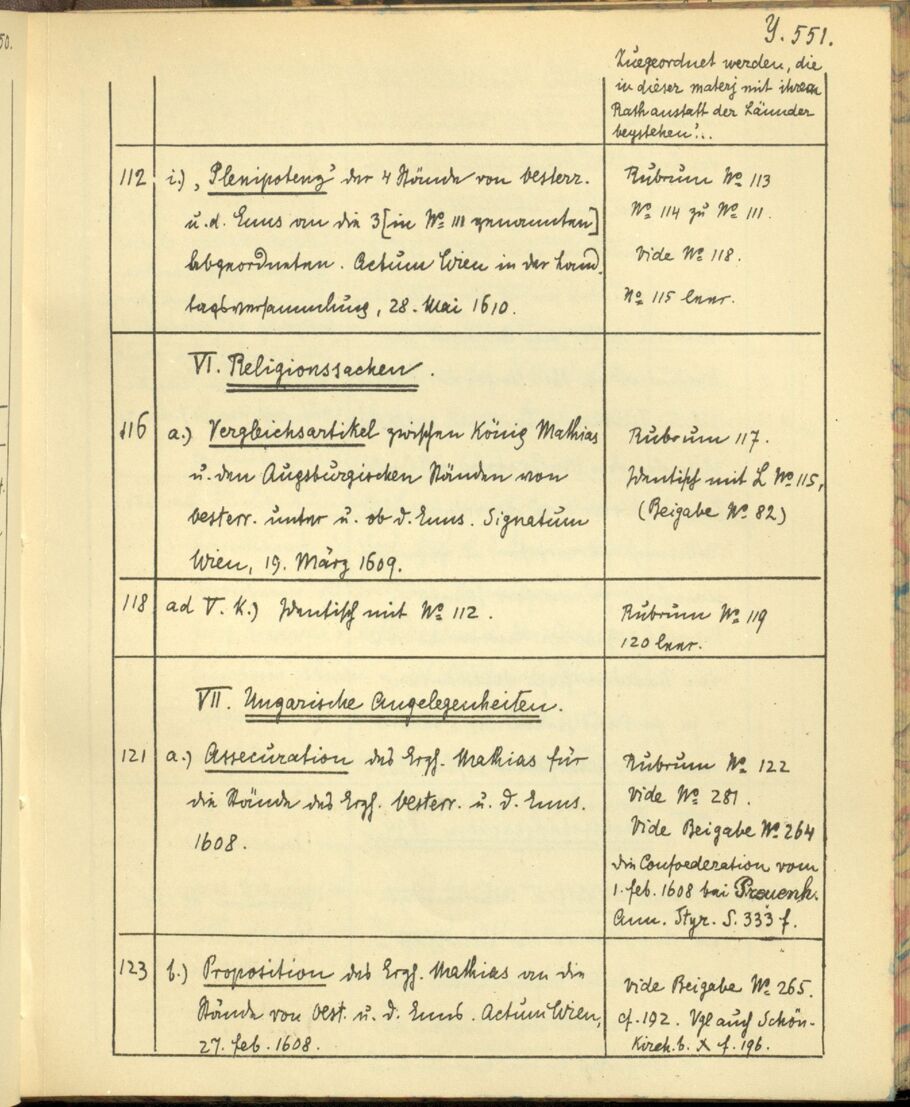 Y. 551.
Zuegeordnet werden, die
in dieser materj mit ihrem
Rath anstatt der Länder
beystehen'...
112 i.) „Plenipotenz' der 4 Stände von oesterr.
u. d. Enns an die 3 [in No 111 genannten]
abgeordneten. Actum Wien in der Land
tagsversammlung, 28. Mai 1610.
Rubrum No 113
No 114 zu No 111.
Vide No 118.
No 115 leer.
VI. Religionssachen.
116 a.) Vergleichsartikel zwischen König Mathias
u. den Augsburgischen Ständen von
oesterr. unter u. ob d. Enns. Signatum
Wien, 19. März 1609.
Rubrum 117.
Identisch mit L No 115,
(Beigabe No 82)
118 ad V. K.) Identisch mit No 112.
Rubrum No 119
120 leer.
VII. Ungarische Angelegenheiten.
121 a.) Assecuration des Erzh. Mathias für
die Stände des Erzh. oesterr. u. d. Enns.
1608.
Rubrum No 122
Vide No 281.
Vide Beigabe No 264
die Confoederation vom
1. feb. 1608 bei Preuenh.
Ann. Styr. S. 333 f.
123 b.) Proposition des Erzh. Mathias an die
Stände von Oest. u. d. Enns. Actum Wien,
27. feb. 1608.
Vide Beigabe No 265.
cf. 192. Vgl auch Schön-
Kirch. b. X f. 196.